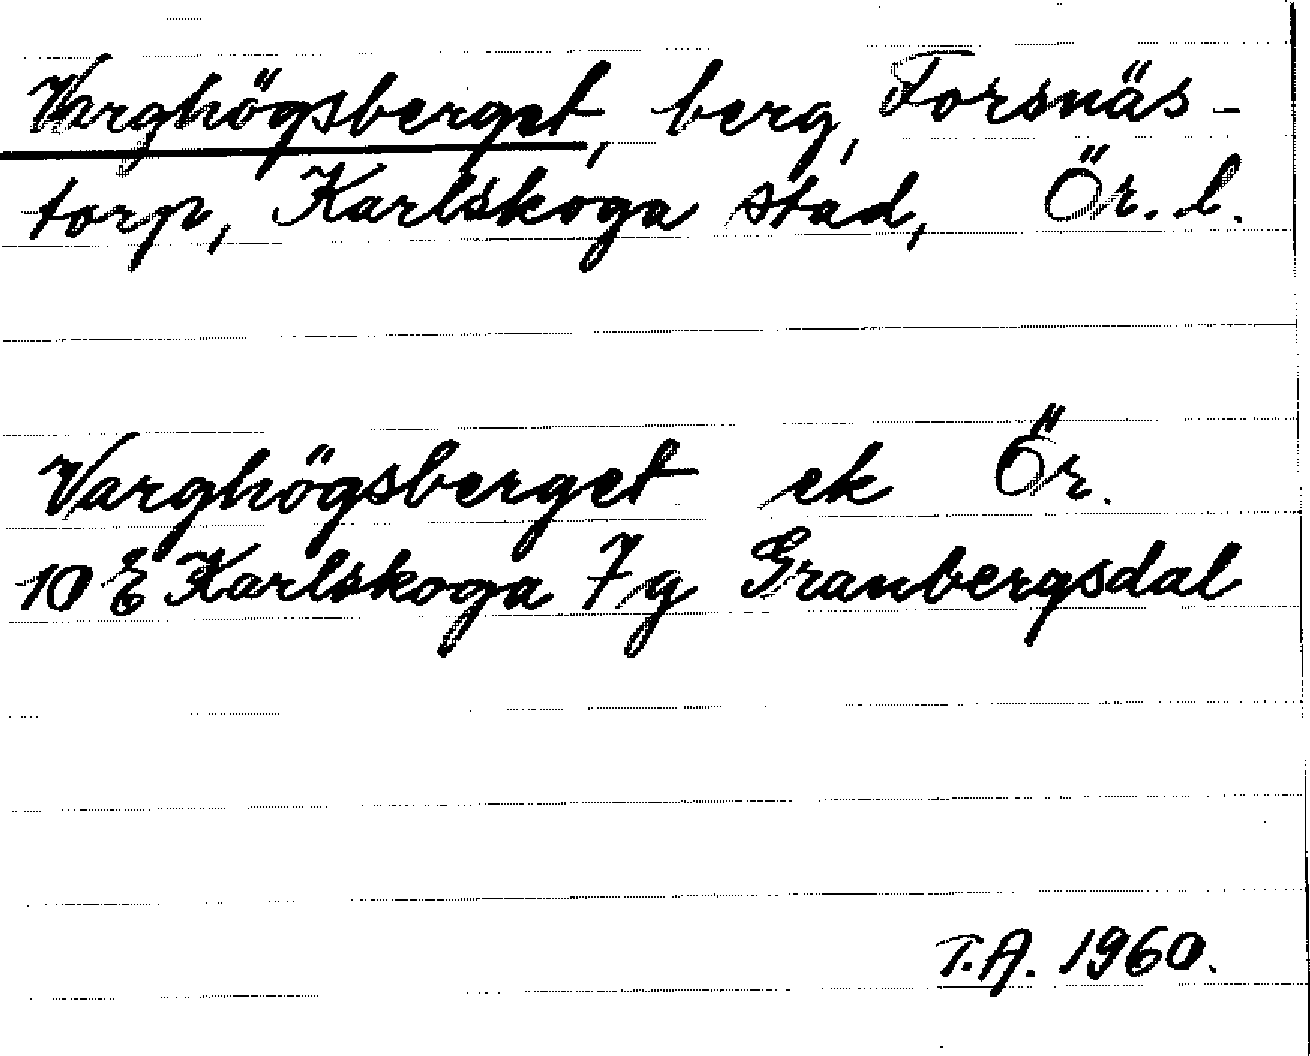 Varghögsberget, berg, Torsnäs-
torp, Karlskoga stad, Ör. l.
Varghögsberget ek Ör.
10 E Karlskoga 7g Granbergsdal
T.A. 1960.